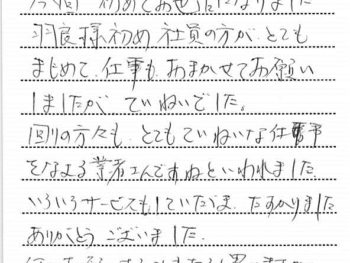 今回初めてお世話になりました
羽良様初め社員の方が、とても
まじめで、仕事も、おまかせてお願い
しましたが ていねいでした。
回りの方々も、とてもていねいな仕事
をなよる業者さんですねといわれました
いろいろサービスもしていただき、たすかりました
ありがとう ございました。